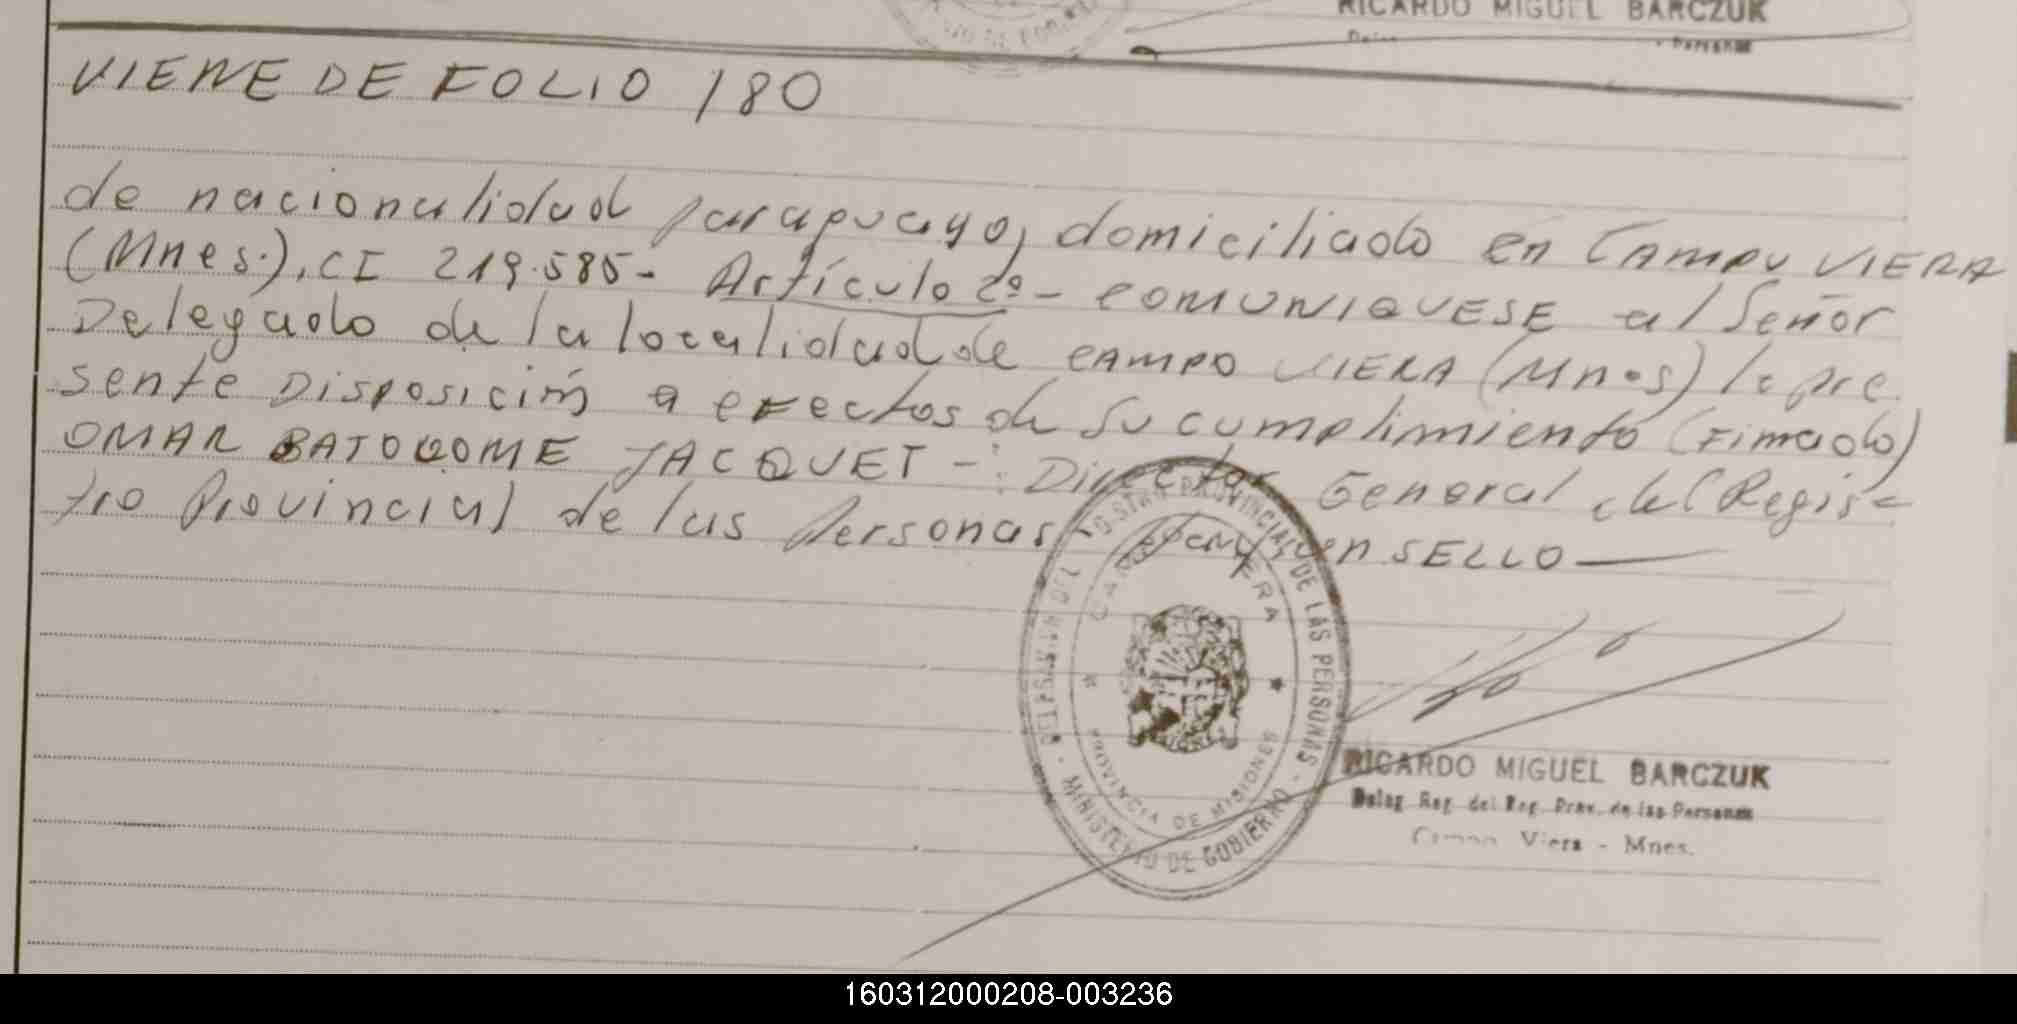 RICARDO MIGUEL BARCZUK
VIENE DE FOLIO 180
de nacionalidad paraguayo, domiciliado en CAMPO VIERA
(Mnes.), CI 219.585- Artículo 2º- COMUNIQUESE al Señor
Delegado de la localidad de CAMPO VIERA (Mnes) la pre
sente Disposición a efectos de su cumplimiento (Fimado)
OMAR BATOLOME JACQUET - Director General del Regis-
tro Provincial de las Personas SELLO
DEL REGISTRO PROVINCIAL DE LAS PERSONAS - MINISTERIO DE GOBIERNO
CAMPO VIERA
PROVINCIA DE MISIONES
RICARDO MIGUEL BARCZUK
Deleg. Reg. del Reg. Prov. de las Personas
Campo Viera - Mnes.
160312000208-003236